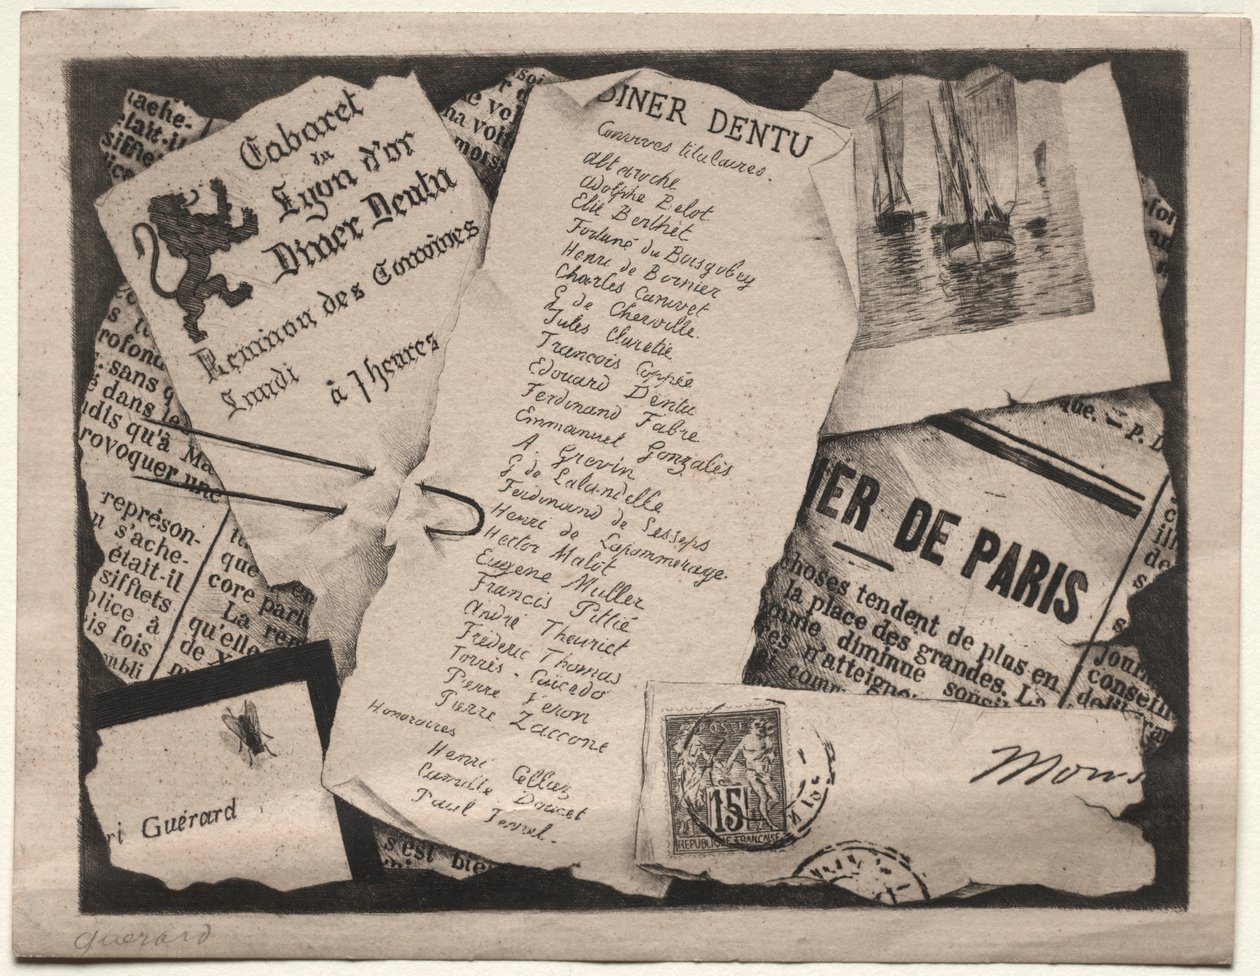 Cabaret
du
Lyon d'or
Diner Dentu
Reunion des Convives
Lundi
à 7 heures
DINER DENTU
Convives titulaires.
Altaroche
Adolphe Belot
Elie Berthet
Fortuné du Boisgobey
Henri de Bornier
Charles Canivet
G de Cherville.
Jules Claretie
Francois Coppée
Edouard Dentu
Ferdinand Fabre
Emmanuel Gonzalès
A. Grevin
G de Lalandelle
Ferdinand de Lesseps
Henri de Lapommeraye.
Hector Malot
Eugene Muller
Francis Pittié
André Theuriet
Frederic Thomas
Torrès-Caicedo
Pierre Véron
Pierre Zaccone
Honoraires
Henri Celliez
Camille Doucet
Paul Fenval.
tache-
élait-il
siffle
ice
r d
e vo
na voi
mors
rofond
sans q
é dans le
ndis qu'à Ma
rovoquer une
représon-
u s'ache-
était-il
sifflets
olice à
is fois
ubli
que
core parle
La ren
qu'elle
de
que. — P. D
IER DE PARIS
choses tendent de plus en
la place des grandes. La
omme diminue sonsi
es n'atteigne
comm
Journ
conseil
de
s'est bien
ri Guérard
POSTES
15
REPUBLIQUE FRANCAISE
Mons
Guerard